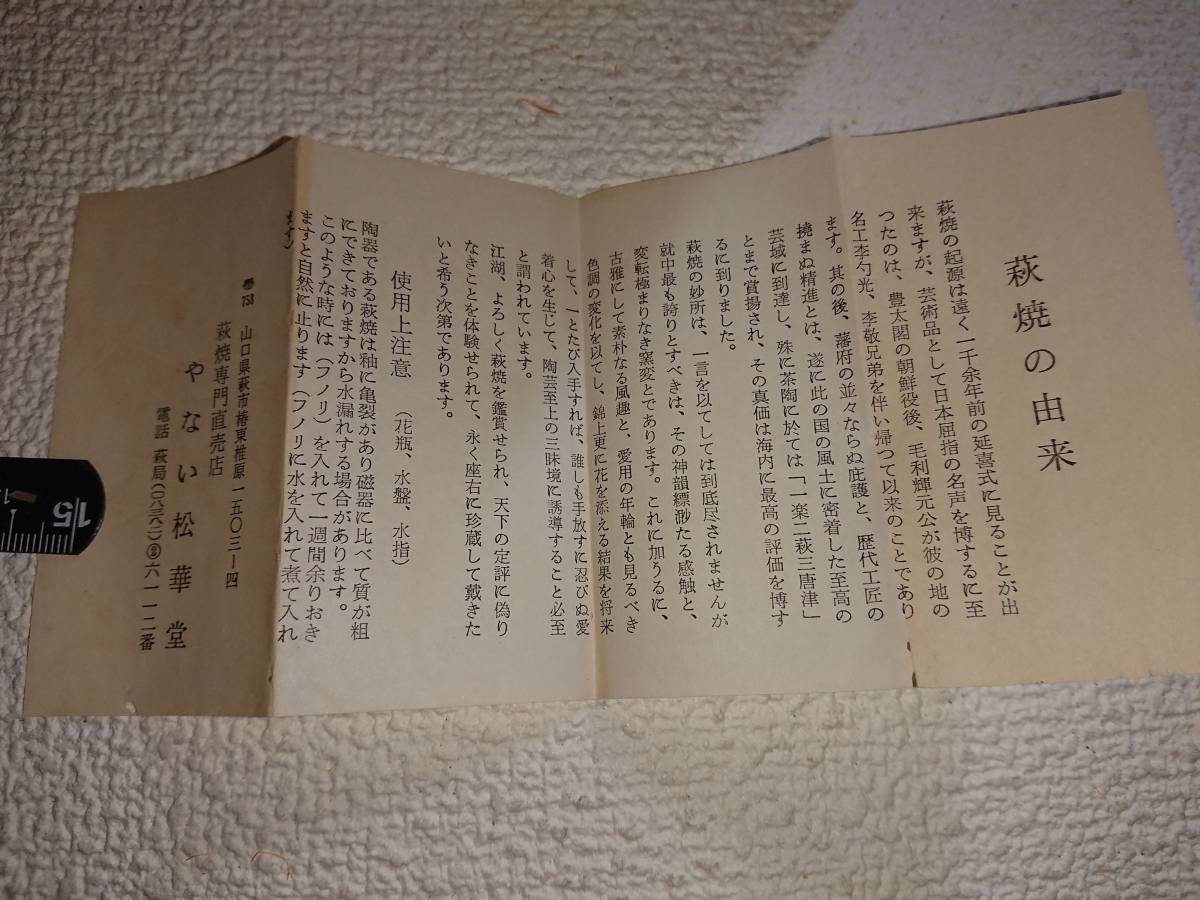 萩焼の由来
萩焼の起源は遠く一千余年前の延喜式に見ることが出
来ますが、芸術品として日本屈指の名声を博するに至
つたのは、豊太閤の朝鮮役後、毛利輝元公が彼の地の
名工李勺光、李敬兄弟を伴い帰つて以来のことであり
ます。其の後、藩府の並々ならぬ庇護と、歴代工匠の
撓まぬ精進とは、遂に此の国の風土に密着した至高の
芸域に到達し、殊に茶陶に於ては「一楽二萩三唐津」
とまで賞揚され、その真価は海内に最高の評価を博す
るに到りました。
萩焼の妙所は、一言を以てしては到底尽されませんが
就中最も誇りとすべきは、その神韻縹渺たる感触と、
変転極まりなき窯変とであります。これに加うるに、
古雅にして素朴なる風趣と、愛用の年輪とも見るべき
色調の変化を以てし、錦上更に花を添える結果を将来
して、一とたび入手すれば、誰しも手放すに忍びぬ愛
着心を生じて、陶芸至上の三昧境に誘導すること必至
と謂われています。
江湖、よろしく萩焼を鑑賞せられ、天下の定評に偽り
なきことを体験せられて、永く座右に珍蔵して戴きた
いと希う次第であります。
使用上注意 (花瓶、水盤、水指)
陶器である萩焼は釉に亀裂があり磁器に比べて質が粗
にできておりますから水漏れする場合があります。
このような時には(フノリ)を入れて一週間余りおき
ますと自然に止ります(フノリに水を入れて煮て入れ
〒758 山口県萩市椿東椎原一五〇三ー四
萩焼専門直売店
やない松華堂
電話 萩局(〇八三八二)②六一一二番
15